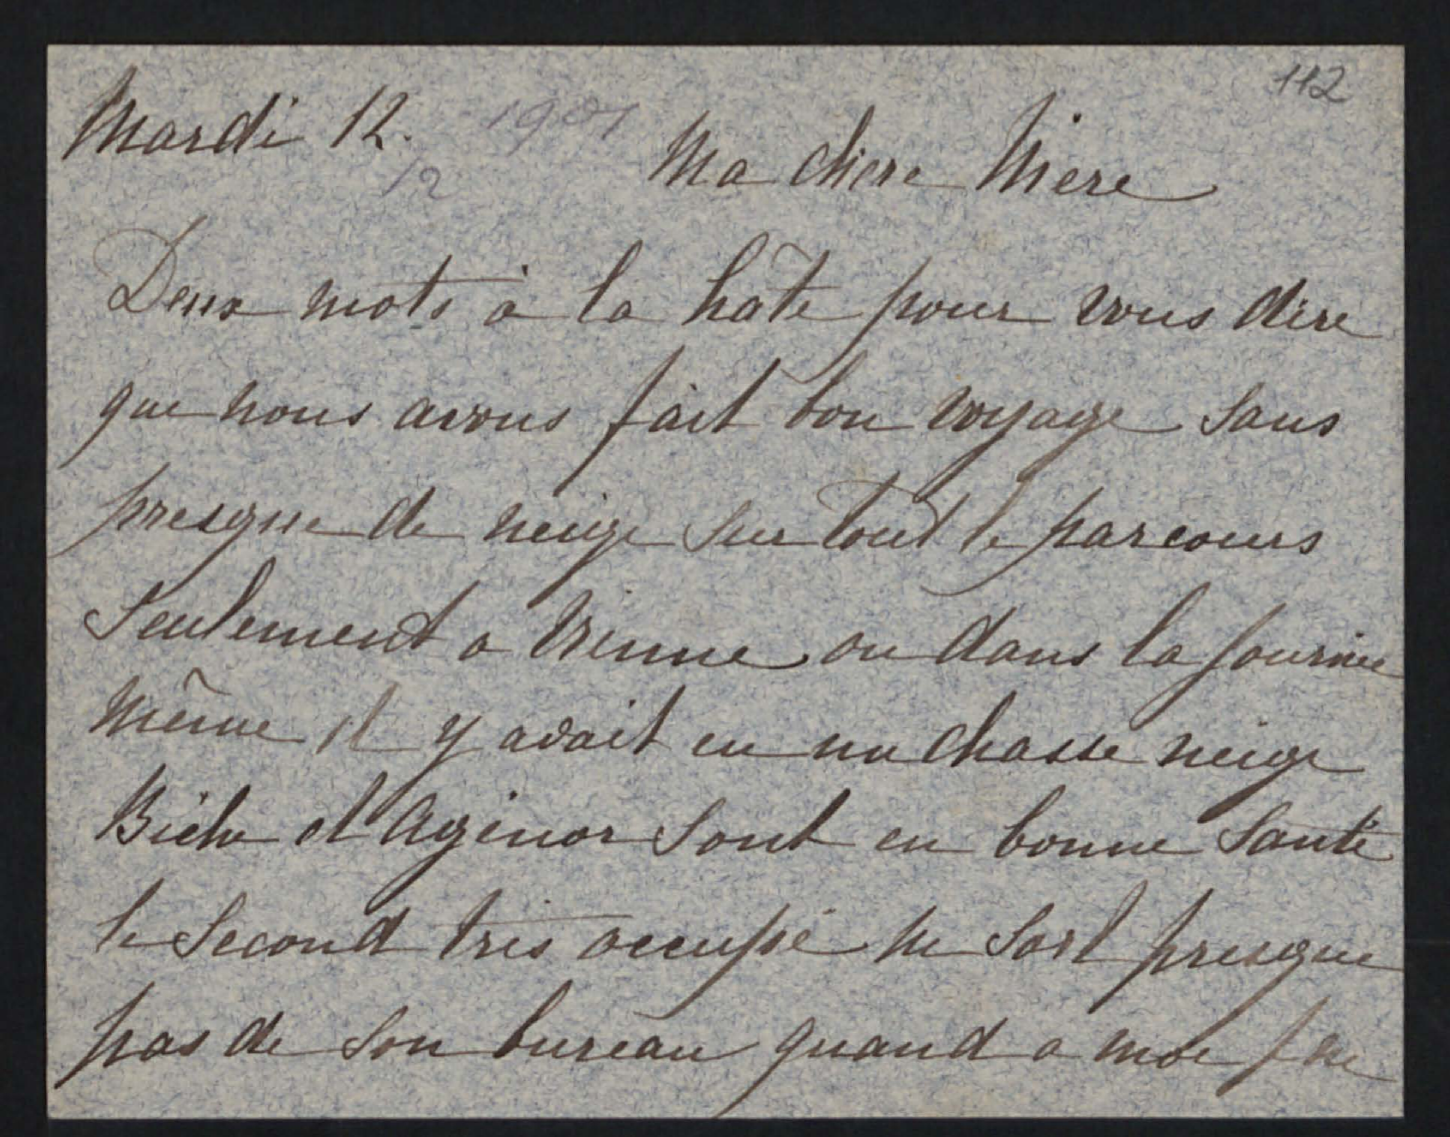 112
Mardi 12. 1901
12
Ma chere Mere
Deux mots à la hâte pour vous dire
que nous avons fait bon voyage sans
presque de neige sur tout le parcours
Seulement a Vienne ou dans la journée
même il y avait eu un chasse neige
Bichu et Agenor sont en bonne santé
le second très occupé ne sort presque
pas de son bureau quand a moi j'ai